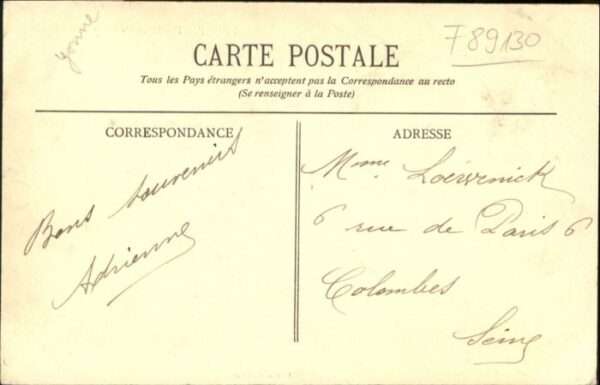 Yonne
F89130
CARTE POSTALE
Tous les Pays étrangers n'acceptent pas la Correspondance au recto
(Se renseigner à la Poste)
CORRESPONDANCE
Bons souvenirs
Adrienne
ADRESSE
Mme
6 rue de Paris 6
Colombes
Seine